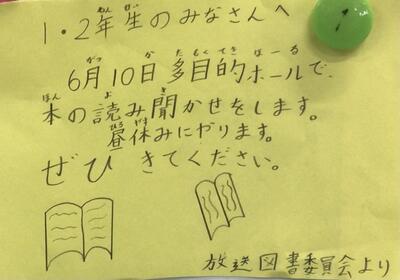 1・2年生のみなさんへ
6月10日多目的ホールで、
本の読み聞かせをします。
昼休みにやります。
ぜひ きてください。
放送図書委員会より